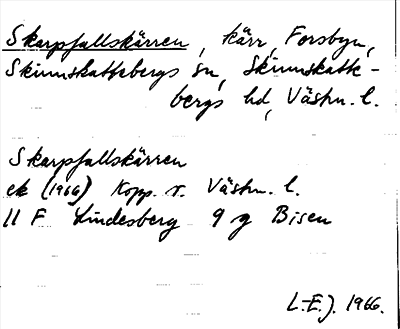 Skarpfallskärren, kärr, Forsbyn,
Skinnskattebergs sn, Skinnskatte-
bergs hd, Västm. l.
Skarpfallskärren
ek (1966) Kopp. o. Västm. l.
11 F Lindesberg 9 g Bisen
L.E.J. 1966.